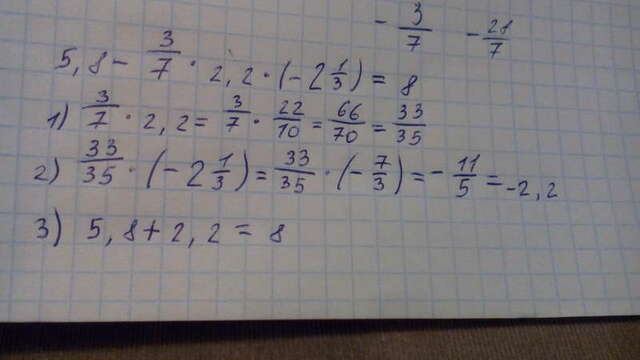 - 3/7 - 28/7
5,8 - 3/7 · 2,2 · (-2 1/3) = 8
1) 3/7 · 2,2 = 3/7 · 22/10 = 66/70 = 33/35
2) 33/35 · (-2 1/3) = 33/35 · (- 7/3) = - 11/5 = -2,2
3) 5,8 + 2,2 = 8